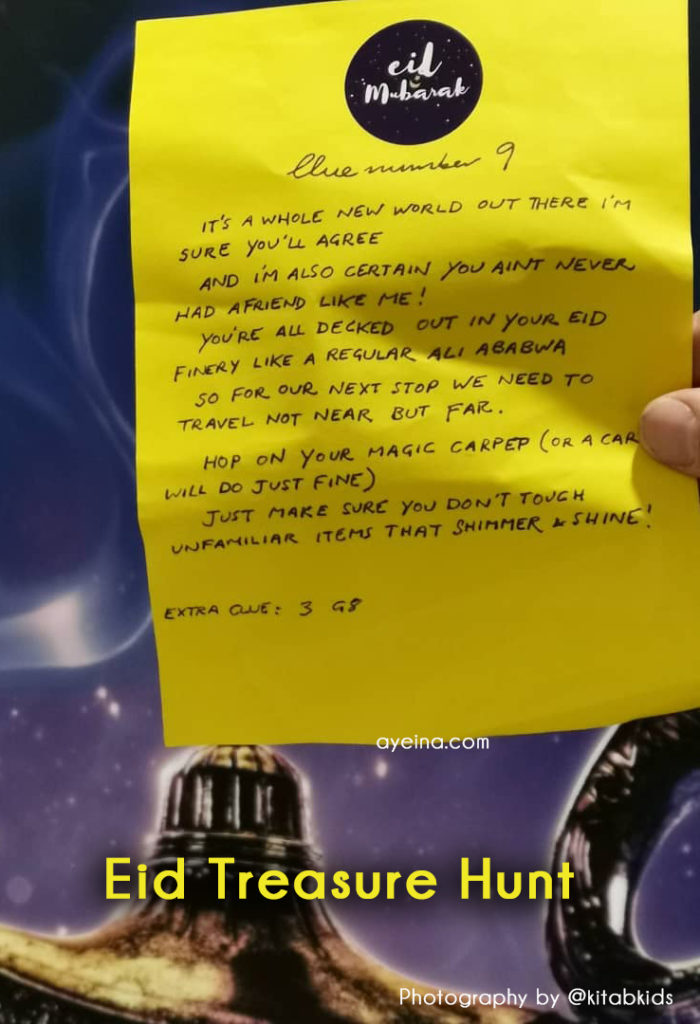 eid
Mubarak
Clue number 9
IT'S A WHOLE NEW WORLD OUT THERE I'M
SURE YOU'LL AGREE
AND I'M ALSO CERTAIN YOU AINT NEVER
HAD A FRIEND LIKE ME!
YOU'RE ALL DECKED OUT IN YOUR EID
FINERY LIKE A REGULAR ALI ABABWA
SO FOR OUR NEXT STOP WE NEED TO
TRAVEL NOT NEAR BUT FAR.
HOP ON YOUR MAGIC CARPEP (OR A CAR
WILL DO JUST FINE)
JUST MAKE SURE YOU DON'T TOUGH
UNFAMILIAR ITEMS THAT SHIMMER & SHINE!
EXTRA CLUE: 3 G8
ayeina.com
Eid Treasure Hunt
Photography by @kitabkids